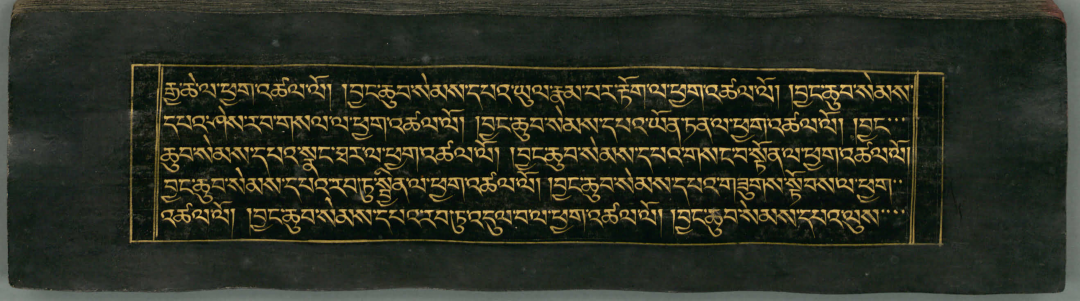 རྒྱ་ཚེ་ལ་ཕྱག་འཚལ་ལོ། །བྱང་ཆུབ་སེམས་དཔའ་ཡུལ་རྣམ་པར་རྟོག་ལ་ཕྱག་འཚལ་ལོ། །བྱང་ཆུབ་སེམས་
དཔའ་ཤེས་རབ་གསལ་ལ་ཕྱག་འཚལ་ལོ། །བྱང་ཆུབ་སེམས་དཔའ་ཡོན་ཏན་ལ་ཕྱག་འཚལ་ལོ། །བྱང་་་
ཆུབ་སེམས་དཔའ་སྣང་ཐར་ལ་ཕྱག་འཚལ་ལོ། །བྱང་ཆུབ་སེམས་དཔའ་གསང་བ་སྟོན་ལ་ཕྱག་འཚལ་ལོ།
བྱང་ཆུབ་སེམས་དཔའ་རབ་ཏུ་སྦྱིན་ལ་ཕྱག་འཚལ་ལོ། །བྱང་ཆུབ་སེམས་དཔའ་གཟུགས་སྟོབས་ལ་ཕྱག་་
འཚལ་ལོ། །བྱང་ཆུབ་སེམས་དཔའ་རབ་ཏུ་འདུལ་བ་ལ་ཕྱག་འཚལ་ལོ། །བྱང་ཆུབ་སེམས་དཔའ་ལུས་་་་